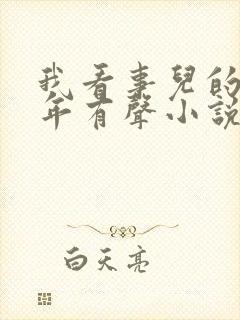 我看事兒的
年有聲小說
白天亮